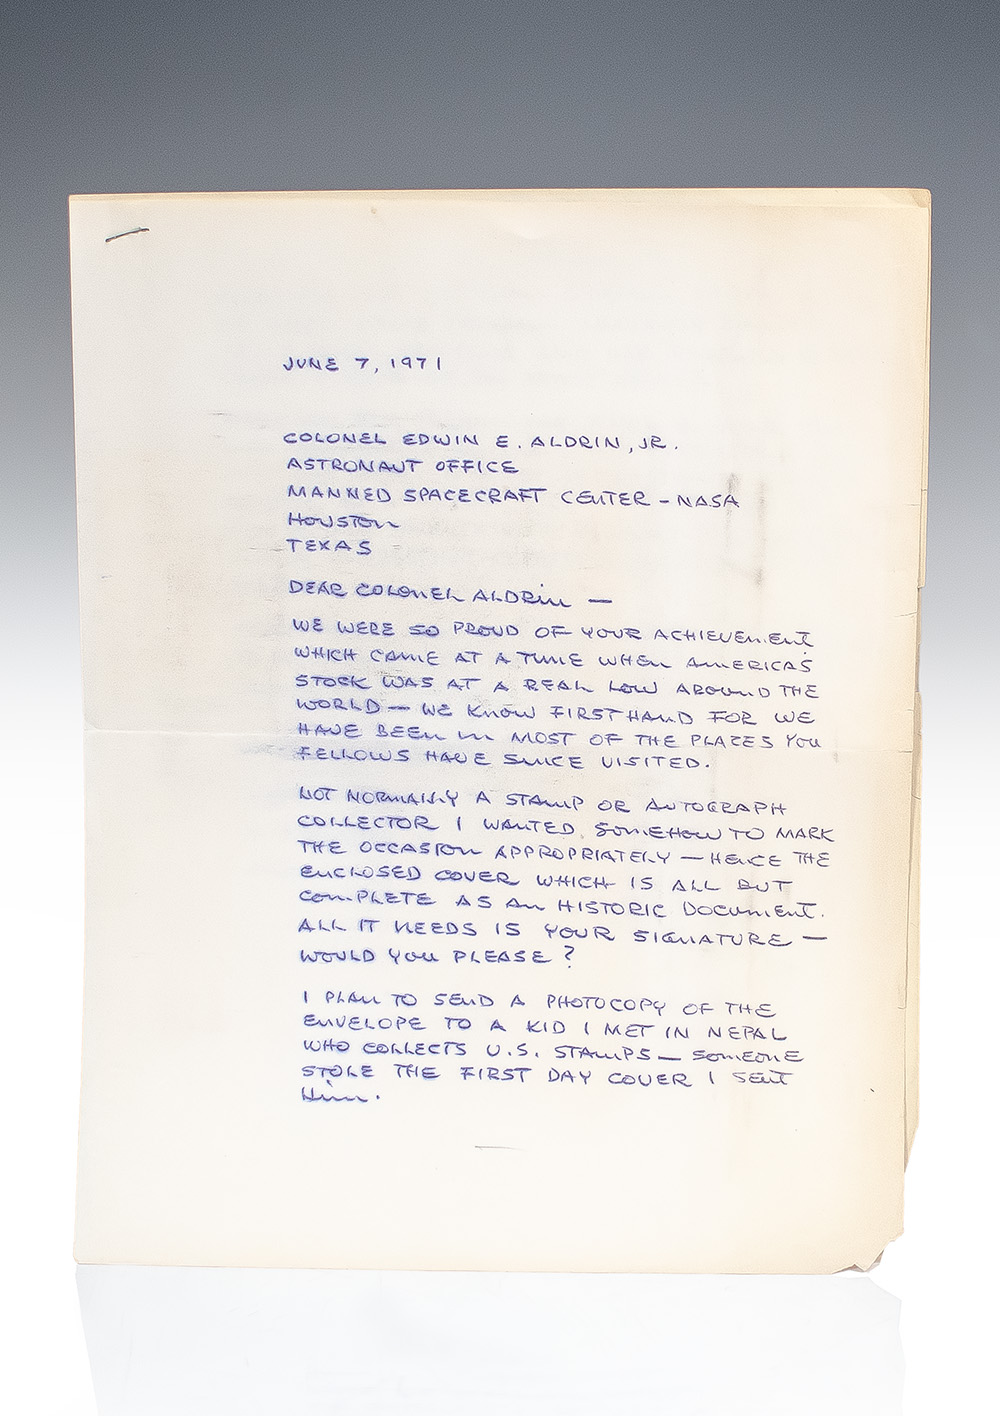 JUNE 7, 1971
COLONEL EDWIN E. ALDRIN, JR.
ASTRONAUT OFFICE
MANNED SPACECRAFT CENTER - NASA
HOUSTON
TEXAS
DEAR COLONEL ALDRIN —
WE WERE SO PROUD OF YOUR ACHIEVEMENT
WHICH CAME AT A TIME WHEN AMERICA'S
STOCK WAS AT A REAL LOW AROUND THE
WORLD — WE KNOW FIRSTHAND FOR WE
HAVE BEEN IN MOST OF THE PLACES YOU
FELLOWS HAVE SINCE VISITED.
NOT NORMALLY A STAMP OR AUTOGRAPH
COLLECTOR I WANTED SOMEHOW TO MARK
THE OCCASION APPROPRIATELY — HENCE THE
ENCLOSED COVER WHICH IS ALL BUT
COMPLETE AS AN HISTORIC DOCUMENT.
ALL IT NEEDS IS YOUR SIGNATURE —
WOULD YOU PLEASE?
I PLAN TO SEND A PHOTOCOPY OF THE
ENVELOPE TO A KID I MET IN NEPAL
WHO COLLECTS U.S. STAMPS — SOMEONE
STOLE THE FIRST DAY COVER I SENT
HIM.